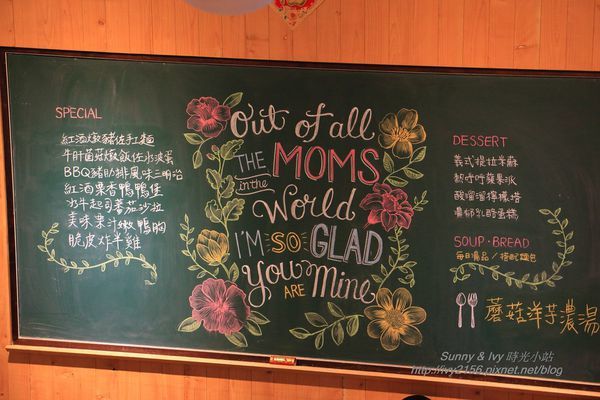 SPECIAL
紅酒燉豬佐手工麵
牛肝菌菇燉飯佐水波蛋
BBQ豬肋排風味三明治
紅酒果香鴨鴨堡
水牛起司蕃茄沙拉
美味果汁嫩鴨胸
脆皮炸半雞
Out of all
THE MOMS
in the
World
I'M SO GLAD
You ARE Mine
DESSERT
義式提拉米蘇
熱呼呼蘋果派
酸溜溜檸檬塔
濃郁乳酪蛋糕
SOUP·BREAD
每日湯品/搭配麵包
蘑菇洋芋濃湯
Sunny & Ivy 時光小站
http://ivy3156.pixnet.net/blog